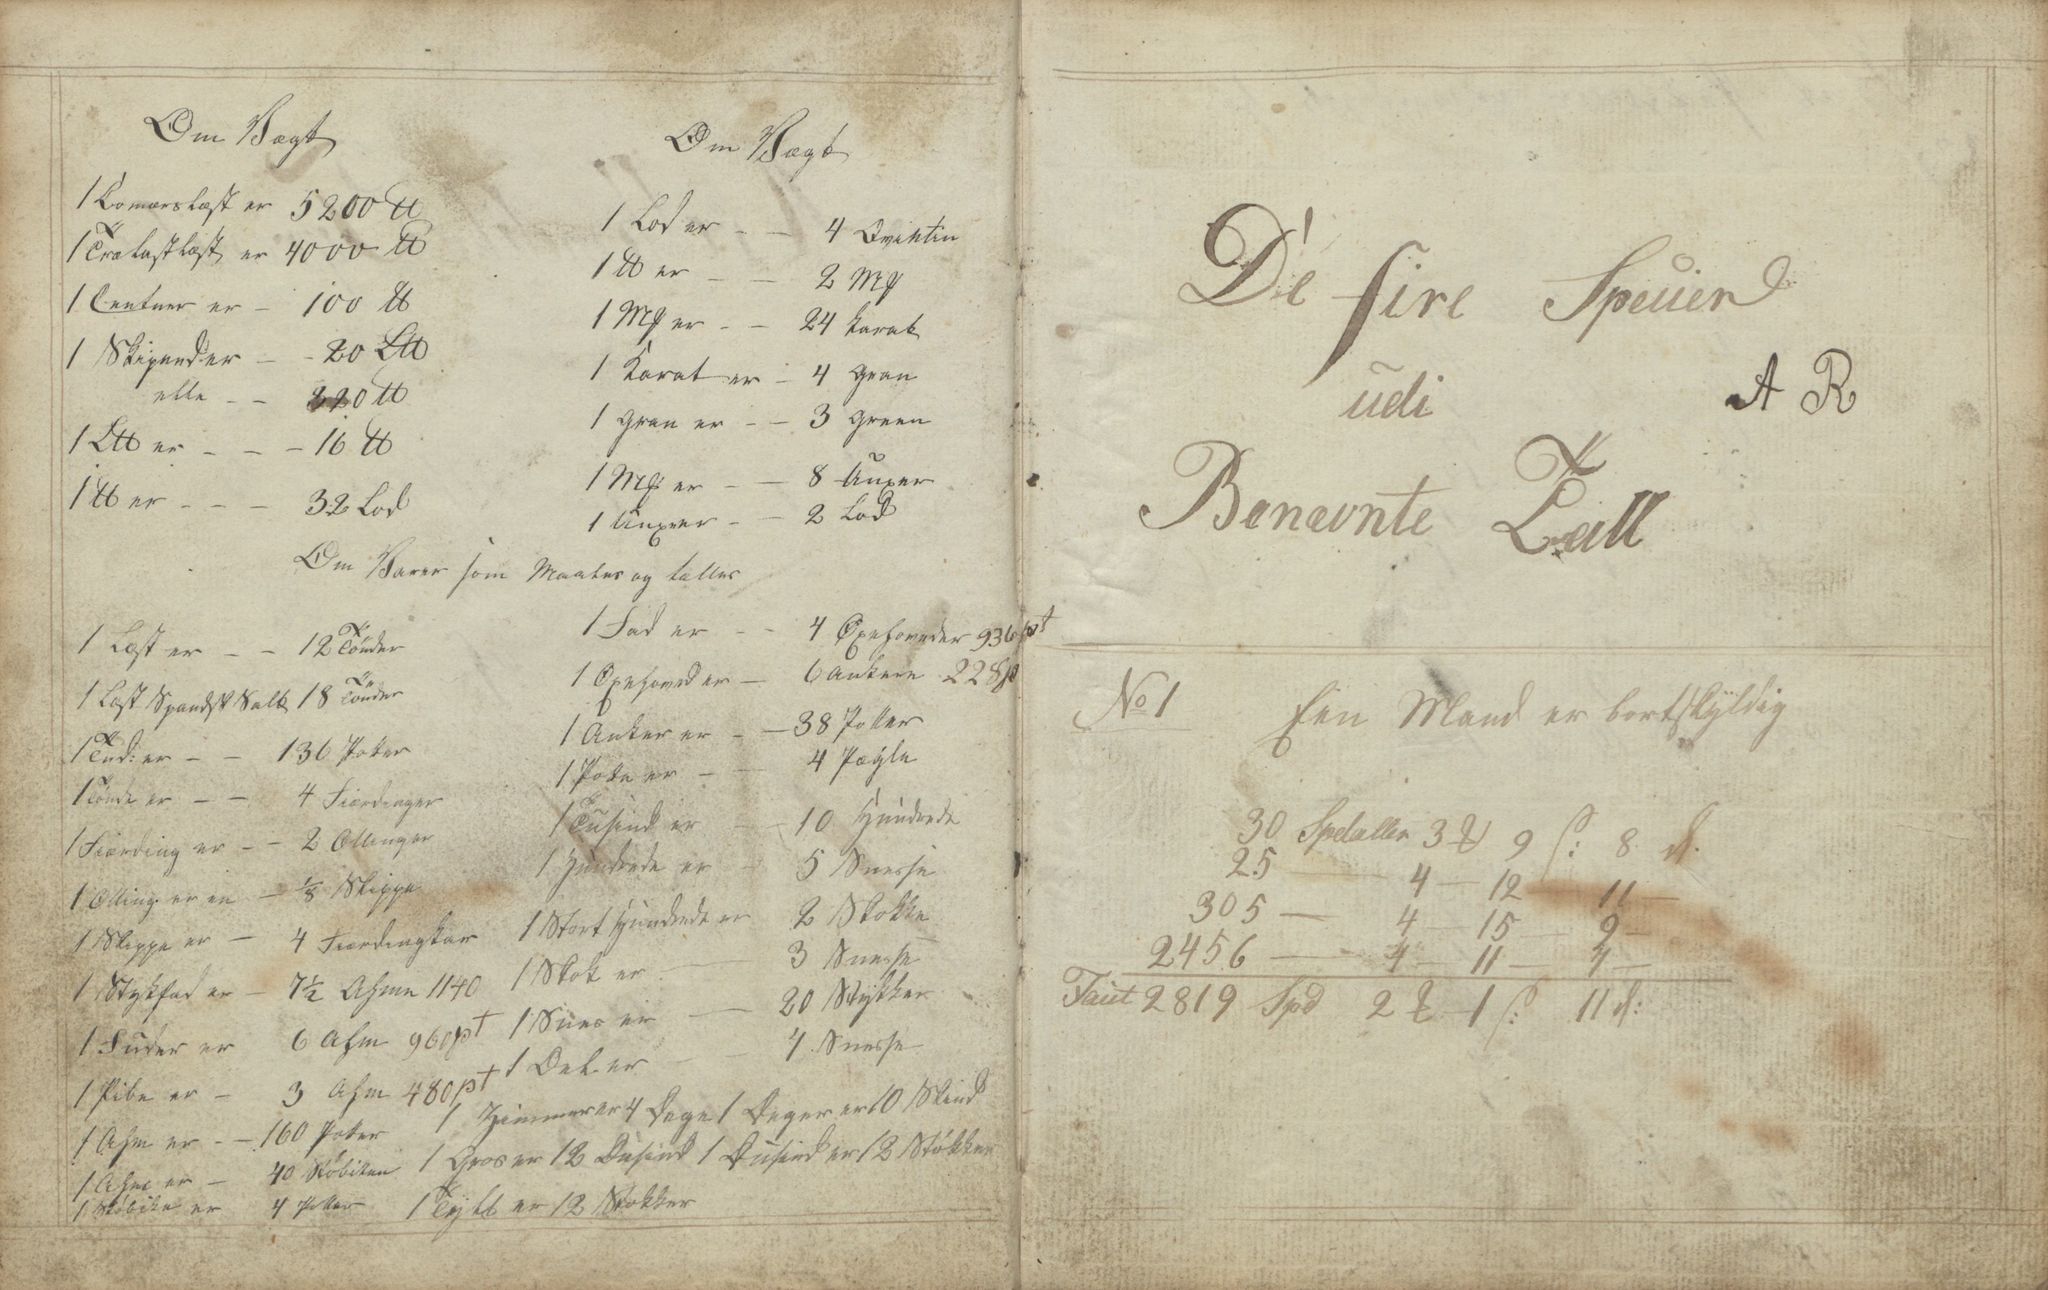 Om Vægt
1 Comærslæst er 5200 ℔
1 Trælastlæst er 4000 ℔
1 Centner er – 100 ℔
1 Skipund er – – 20 L℔
elle – – 320 ℔
1 L℔ er – – – 16 ℔
1 ℔ er – – – 32 Lod
Om Vægt
1 Lod er – – 4 Qvintin
1 ℔ er – – 2 Mꝶ
1 Mꝶ er – – 24 karat
1 Karat er – 4 gran
1 gran er – – 3 green
1 Mꝶ er – – 8 Unxer
1 Unxer – – 2 Lod
Om Varer som Maales og tælles
1 Læst er – – 12 Tønder
1 Læst Spandsk Salt 18 Tønder
1 Tnd: er – – 136 Poter
1 Tønde er – – 4 Fiærdinger
1 Fiærding er – – 2 Ottinger
1 Otting er en – 1/8 Skippe
1 Skippe er – 4 Fiærdingkar
1 Stykfad er – 7½ Ahme 1140
1 Fuder er 6 Ahm 960 pt
1 Pibe er – 3 Ahm 480 pt
1 Ahm er – – 160 Poter
1 Ahm er – 40 Støbiken
1 Støbike er 4 Potter
1 Fad er – – 4 Oxehoveder 936 pt
1 Oxehoved er – 6 Ankere 228 p
1 Anker er – – 38 Potter
1 Pote er – – 4 Pægle
1 Tusend er – – 10 Hundrede
1 Hundrede er – 5 Snesse
1 Stort Hundrede er 2 Skokke
1 Skok er – 3 Snesse
1 Snes er – 20 Stykker
1 Ort er – – 4 Snesse
1 Zimmer er 4 Dege 1 Deger er 10 Skind
1 Gros er 12 Dusind 1 Dusind er 12 Støkker
1 Tylt er 12 Stokker
De fire Speuier
udi
A R
Benævnte Tall
No 1 Een Mand er bortskyldig
30 Spedaller 3 ₰ 9 ẞ: 8 d.
25 – 4 – 12 – 11 –
305 – 4 – 15 – 9 –
2456 – 4 – 11 – 7 –
Faut 2819 Spd 2 ₰ 1 ẞ: 11 d: